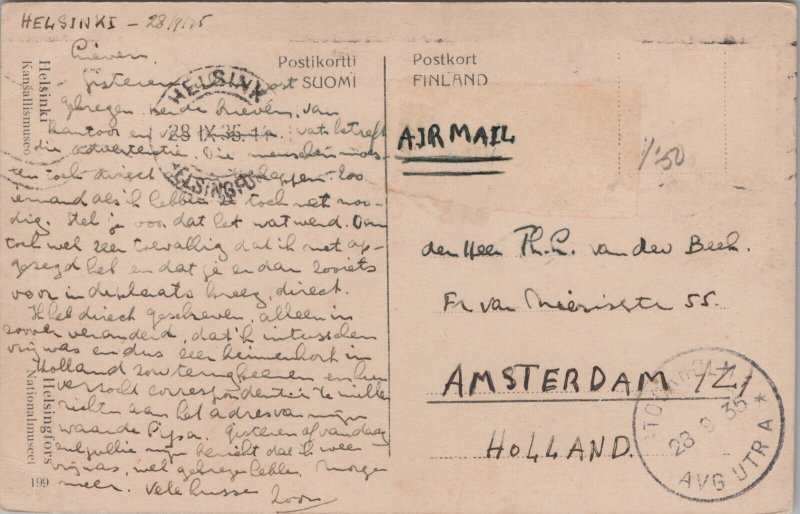 HELSINKI - 28/9/35
Lieven.
Gisteren post
gekregen. beide brieven, van
kantoor en wat betreft
die advertentie. Die menschen moes-
ten toch direct happen. Zoo
iemand als ik hebben ze toch net noo-
dig. Stel je voor dat het wat werd. Dan
toch wel zeer toevallig dat ik net op-
gezegd heb en dat je er dan zooiets
voor in de plaats kreeg, direct.
Ik heb direct geschreven, alleen in
zoover veranderd, dat ik intusschen
vrij was en dus zeer binnenkort in
Holland zou terugkeeren en hen
verzocht correspondentie te willen
richten aan het adres van mijn
waarde Pipsa. Gisteren of vandaag
zul jullie mijn bericht dat ik weer
vrij was, wel gekregen hebben. Morgen
meer. Vele kusse
Postikortti
SUOMI
Postkort
FINLAND
Helsinki
Kansallismuseo
Helsingfors
Nationalmuseet
199
HELSINKI
28 IX 35
HELSINGFORS
AIR MAIL
1/50
den Heer Ph. L. van der Beek.
Fr. van Mierisstr 55.
AMSTERDAM /Z/
HOLLAND.
STOCKHOLM
28 9 35
AVG UTR A